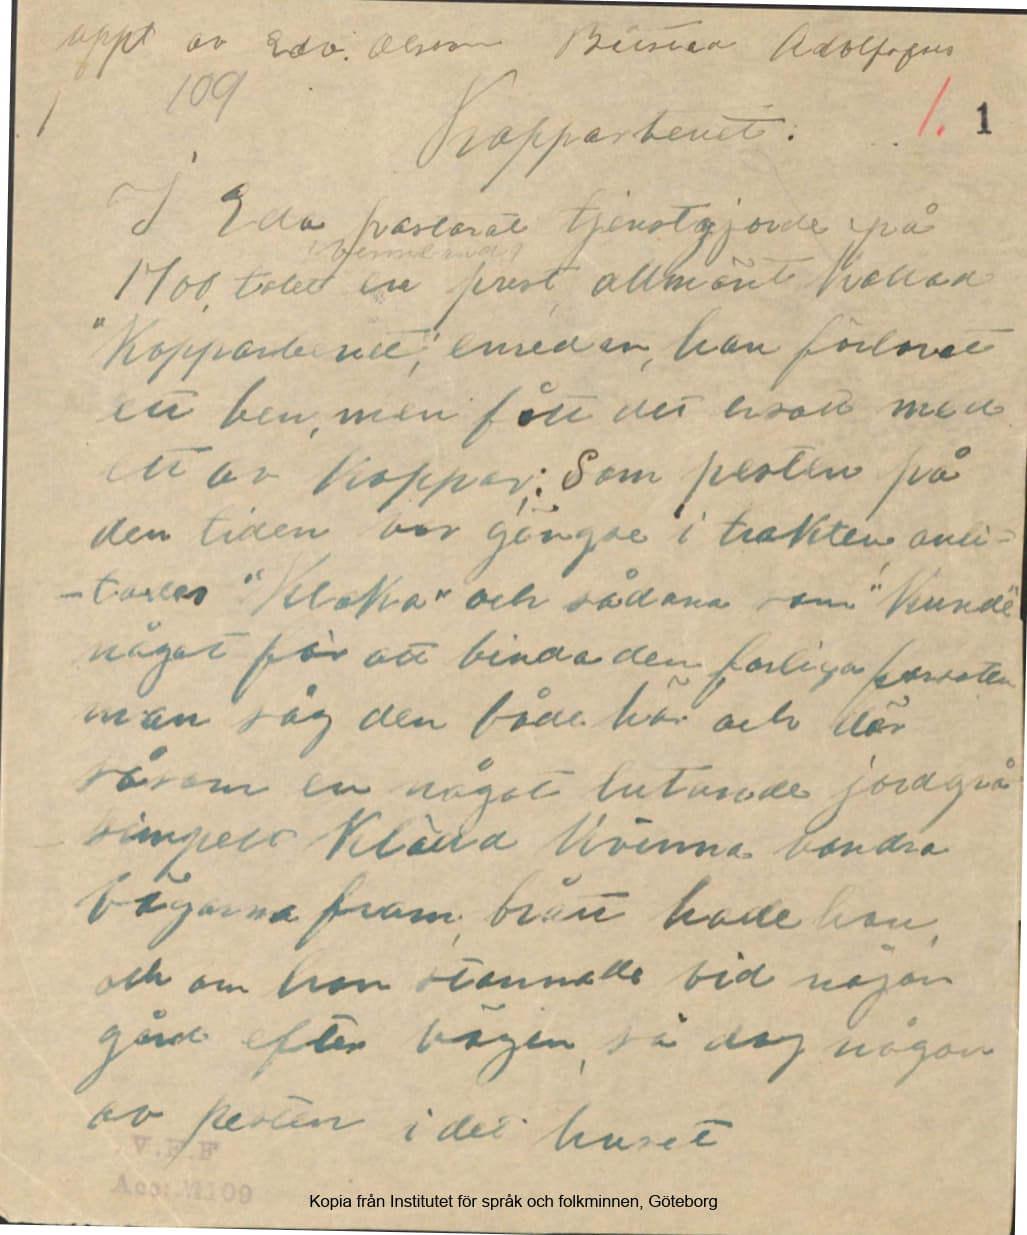 uppt av Edv. Olsson Adolfsfors
109
1. 1
Kopparbenet.
I Eda pastorat tjenstgjorde på
(Vermland)
1700 talet en prest, allmänt kallad
"Kopparbenet", emedan, han förlorat
ett ben, men fått det ersatt med
ett av koppar; Som pesten på
den tiden var gängse i trakten, anli-
-tades "Kloka" och sådana som "Kunde"
något för att binda den farliga pesten
man såg den både här och där
såsom en något lutande jordgrå
simpelt Klädd Kvinna vandra
vägarna fram, brått hade hon,
och om hon stannade vid någon
gård efter vägen, så dog någon
av pesten i det huset
V.F.F
Acc: M109
Kopia från Institutet för språk och folkminnen, Göteborg